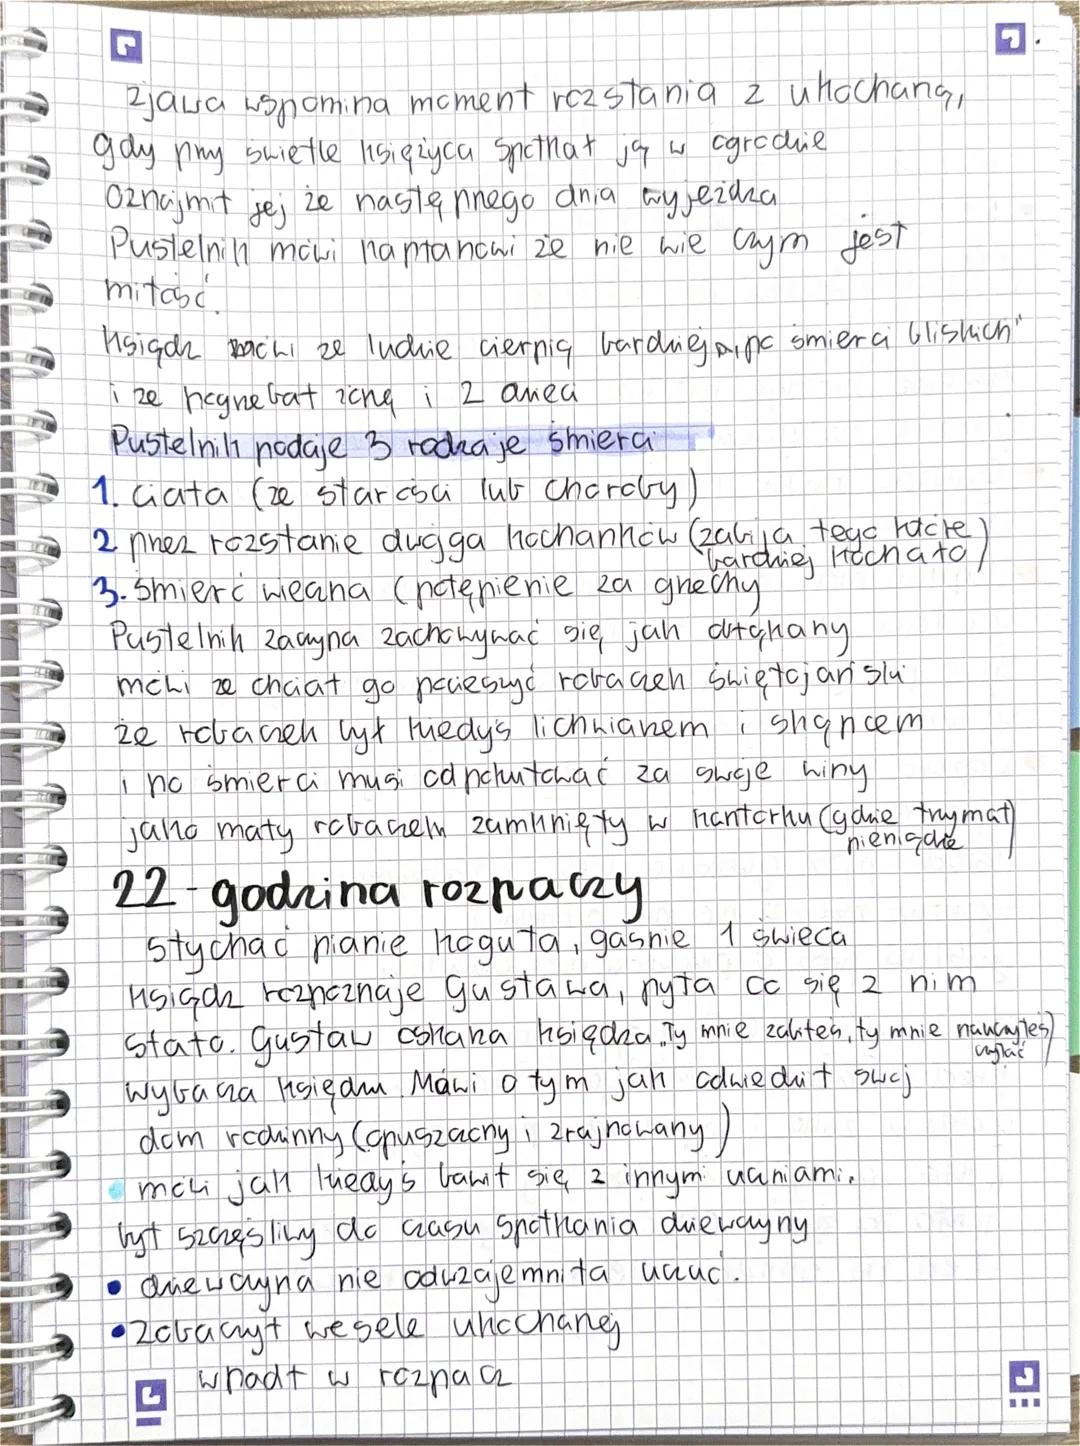 zjawa wspomina moment rozstania z ukochaną,
gdy przy świetle księżyca spotkał ją w ogrodzie
oznajmił jej że następnego dnia wyjeżdża
Pustelnik mówi kapłanowi że nie wie czym jest
miłość.
Ksiądz mówi że ludzie cierpią bardziej „po śmierci bliskich"
i że pogrzebał żonę i 2 dzieci
Pustelnik podaje 3 rodzaje śmierci
1. ciała (ze starości lub choroby)
2 przez rozstanie dwojga kochanków (zabija tego które
bardziej kochało)
3. śmierć wieczna (potępienie za grzechy
Pustelnik zaczyna zachowywać się jak obłąkany
mówi że chciał go pocieszyć robaczek świętojański
że robaczek był kiedyś lichwiarzem i skąpcem
i po śmierci musi odpokutować za swoje winy
jako mały robaczek zamknięty w kantorku (gdzie trzymał)
pieniądze
22 - godzina rozpaczy
słychać pianie koguta, gaśnie 1 świeca
Ksiądz rozpoznaje Gustawa, pyta co się z nim
stało. Gustaw oskarża księdza „Ty mnie zabiłeś, ty mnie nauczyłeś)
czytać
wybacza księdzu. Mówi o tym jak odwiedził swój
dom rodzinny (opuszczony i zrujnowany)
mówi jak kiedyś bawił się z innymi uczniami.
był szczęśliwy do czasu spotkania dziewczyny
• dziewczyna nie odwzajemniła uczuć.
• Zobaczył wesele ukochanej
wpadł w rozpacz